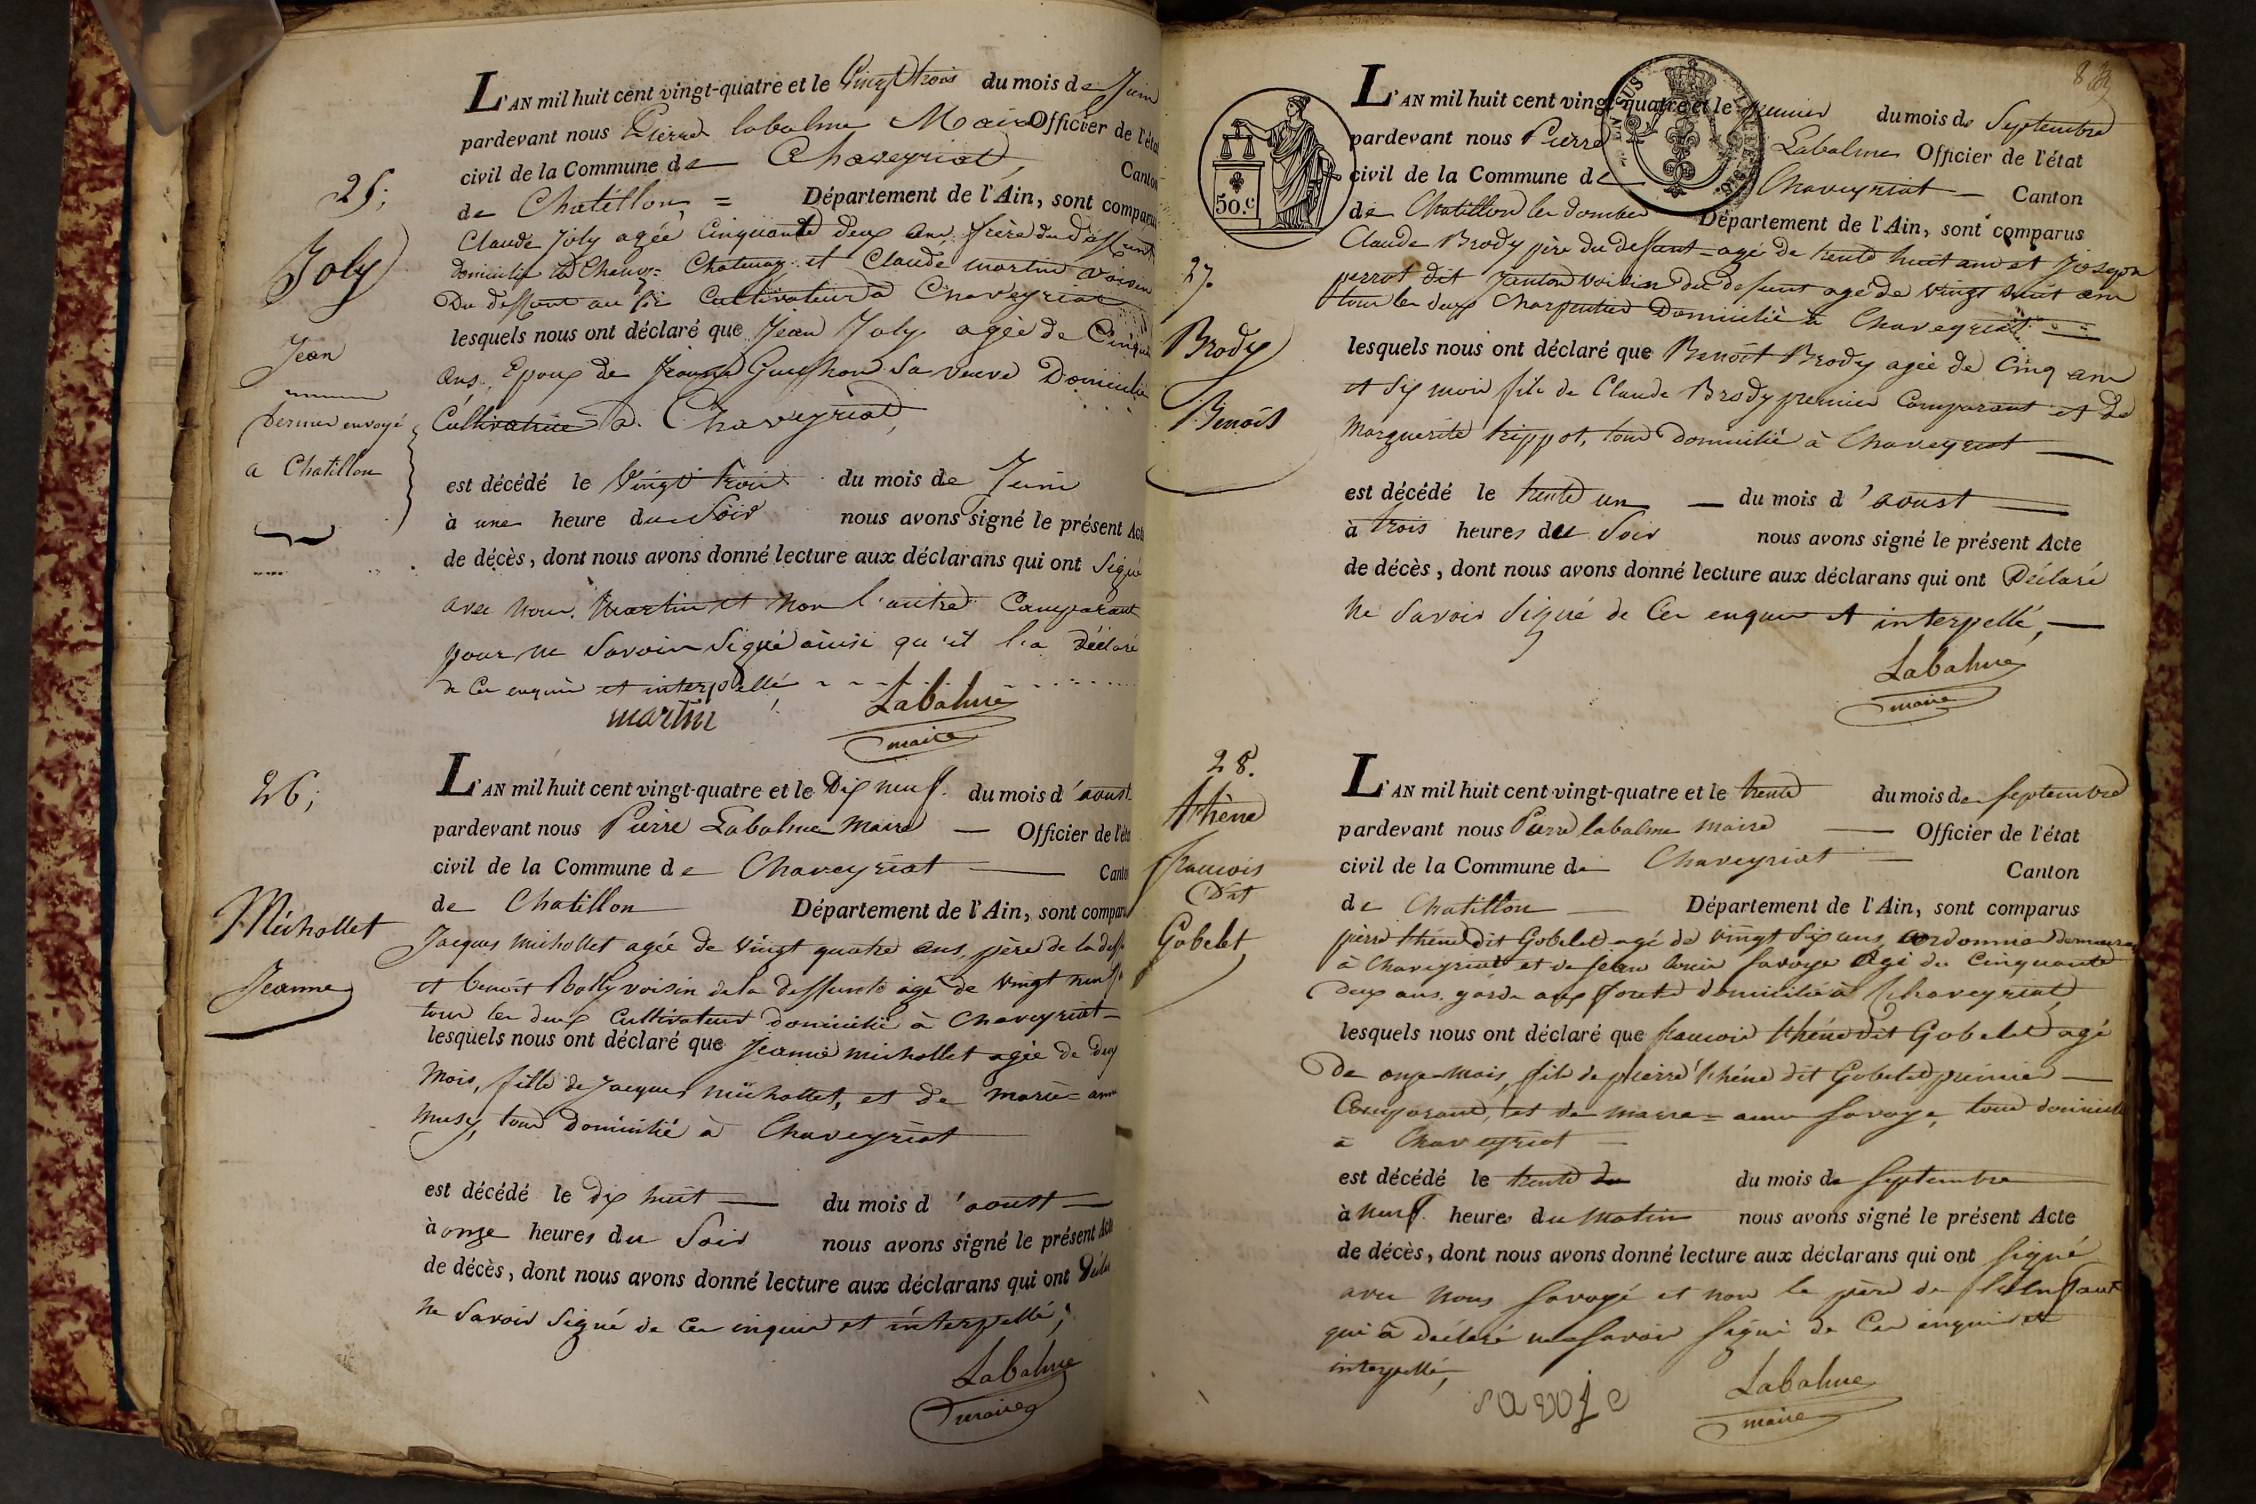 25;
Joly
Jean
dernier envoyé
a Chatillon
L'AN mil huit cent vingt-quatre et le Vingt trois du mois de Juin
pardevant nous Pierre labalme Maire Officier de l'état
civil de la Commune de Chaveyriat, Canton
de Chatillon = Département de l'Ain, sont comparus
Claude Joly agée Cinquante deux ans, frère du deffunt
domicilié à Chatenay et Claude martin voisin
Du deffunt aussi Cultivateur a Chaveyriat
lesquels nous ont déclaré que Jean Joly agée de Cinqu
ans, Epoux de Guichon Sa veuve Domiciliée
Cultivatrice a Chaveyriat,
est décédé le Vingt trois du mois de Juin
à une heure du Soir nous avons signé le présent Acte
de décès, dont nous avons donné lecture aux déclarans qui ont Signé
avec nous Martin et non l'autre Comparant
pour ne Savoir Signé ainsi qu'il l'a Déclaré
de Ce enquis et interpellé
martin Labalme
maire
26;
Michollet
Jeanne
L'AN mil huit cent vingt-quatre et le Dix neuf du mois d'aoust
pardevant nous Pierre Labalme Maire — Officier de l'état
civil de la Commune de Chaveyriat — Canton
de Chatillon Département de l'Ain, sont comparus
Jacques Michollet agée de vingt quatre ans, père de la deff
et benoit Bolly voisin de la deffunte agé de vingt neuf
tous les deux Cultivateurs domicilié à Chaveyriat
lesquels nous ont déclaré que Jeanne michollet agée de deux
Mois, fille de Jacques michollet, et de marie = anne
Musy, tous Domicilié à Chaveyriat
est décédé le dix huit — du mois d'aoust —
à onze heures du Soir nous avons signé le présent Acte
de décès, dont nous avons donné lecture aux déclarans qui ont Décla
ne Savoir Signé de Ce enquis et interpellé;
Labalme
maire
50.c
27.
Brody
Benoit
L'AN mil huit cent vingt-quatre et le premier du mois de Septembre
pardevant nous Pierre Labalme Officier de l'état
civil de la Commune de Chaveyriat — Canton
de Chatillon les dombes Département de l'Ain, sont comparus
Claude Brody père du defunt agé de trente huit ans et Joseph
perrot dit Janton voisin du defunt agé de vingt huit ans
tous les deux Charpentier Domicilié à Chaveyriat
lesquels nous ont déclaré que Benoit Brody agée de Cinq ans
et Six mois fils de Claude Brody premier Comparant et de
Marguerite trippot, tous Domicilié à Chaveyriat
est décédé le trente un — du mois d'aoust —
à trois heures du Soir nous avons signé le présent Acte
de décès, dont nous avons donné lecture aux déclarans qui ont Déclaré
Ne Savoir Signé de Ce enquis et interpellé, —
Labalme
maire
28.
thène
francois
Dit
Gobelet
L'AN mil huit cent vingt-quatre et le trente du mois de Septembre
pardevant nous Pierre labalme maire — Officier de l'état
civil de la Commune de Chaveyriat — Canton
de Chatillon — Département de l'Ain, sont comparus
pierre théne dit Gobelet agé de vingt Six ans, cordonnier demeurant
à Chaveyriat et de Jean louis Savoye agé de Cinquante
Deux ans, garde aux forets domicilié à Chaveyriat
lesquels nous ont déclaré que francois théne dit Gobelet agé
De onze Mois, fils de pierre théne dit Gobelet premier —
Comparant, et de marie = anne Savoye, tous domicilié
à Chaveyriat —
est décédé le trente du du mois de Septembre
à neuf heures du Matin nous avons signé le présent Acte
de décès, dont nous avons donné lecture aux déclarans qui ont Signé
avec nous Savoyé et non le père de l'Enfant
qui a déclaré ne Savoir Signé de Ce enquis et
interpellé,
savoie Labalme
maire